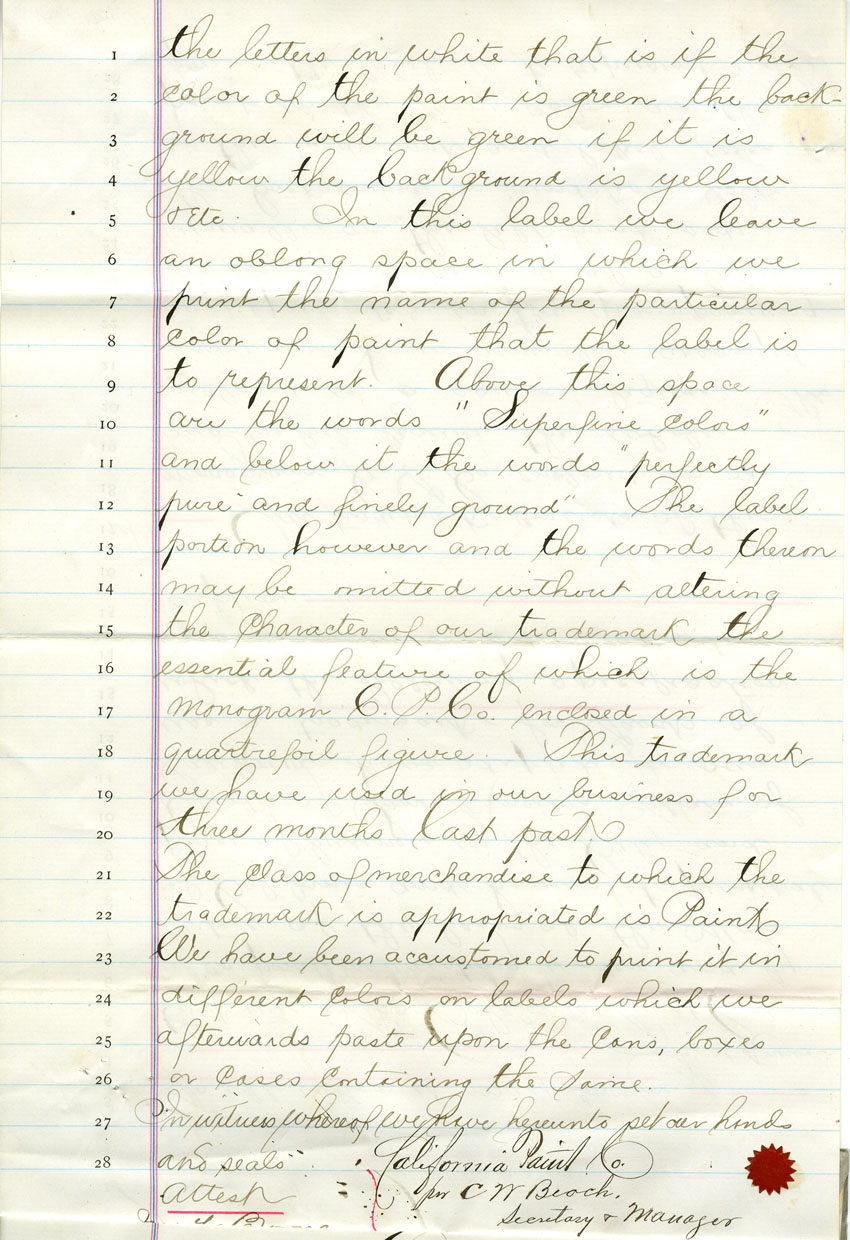 1 the letters in white that is if the
2 color of the paint is green the back-
3 ground will be green if it is
4 yellow the background is yellow
5 & Etc. In this label we leave
6 an oblong space in which we
7 print the name of the particular
8 color of paint that the label is
9 to represent. Above this space
10 are the words "Superfine colors"
11 and below it the words "perfectly
12 pure and finely ground" The label
13 portion however and the words thereon
14 may be omitted without altering
15 the character of our trademark the
16 essential feature of which is the
17 monogram C. P. Co. enclosed in a
18 quartrefoil figure. This trademark
19 we have used in our business for
20 three months last past
21 The class of merchandise to which the
22 trademark is appropriated is Paint
23 We have been accustomed to print it in
24 different colors on labels which we
25 afterwards paste upon the cans, boxes
26 or cases containing the same.
27 In witness whereof we have hereunto set our hands
28 and seals California Paint Co.
Attest per C W Beach.
Secretary & Manager